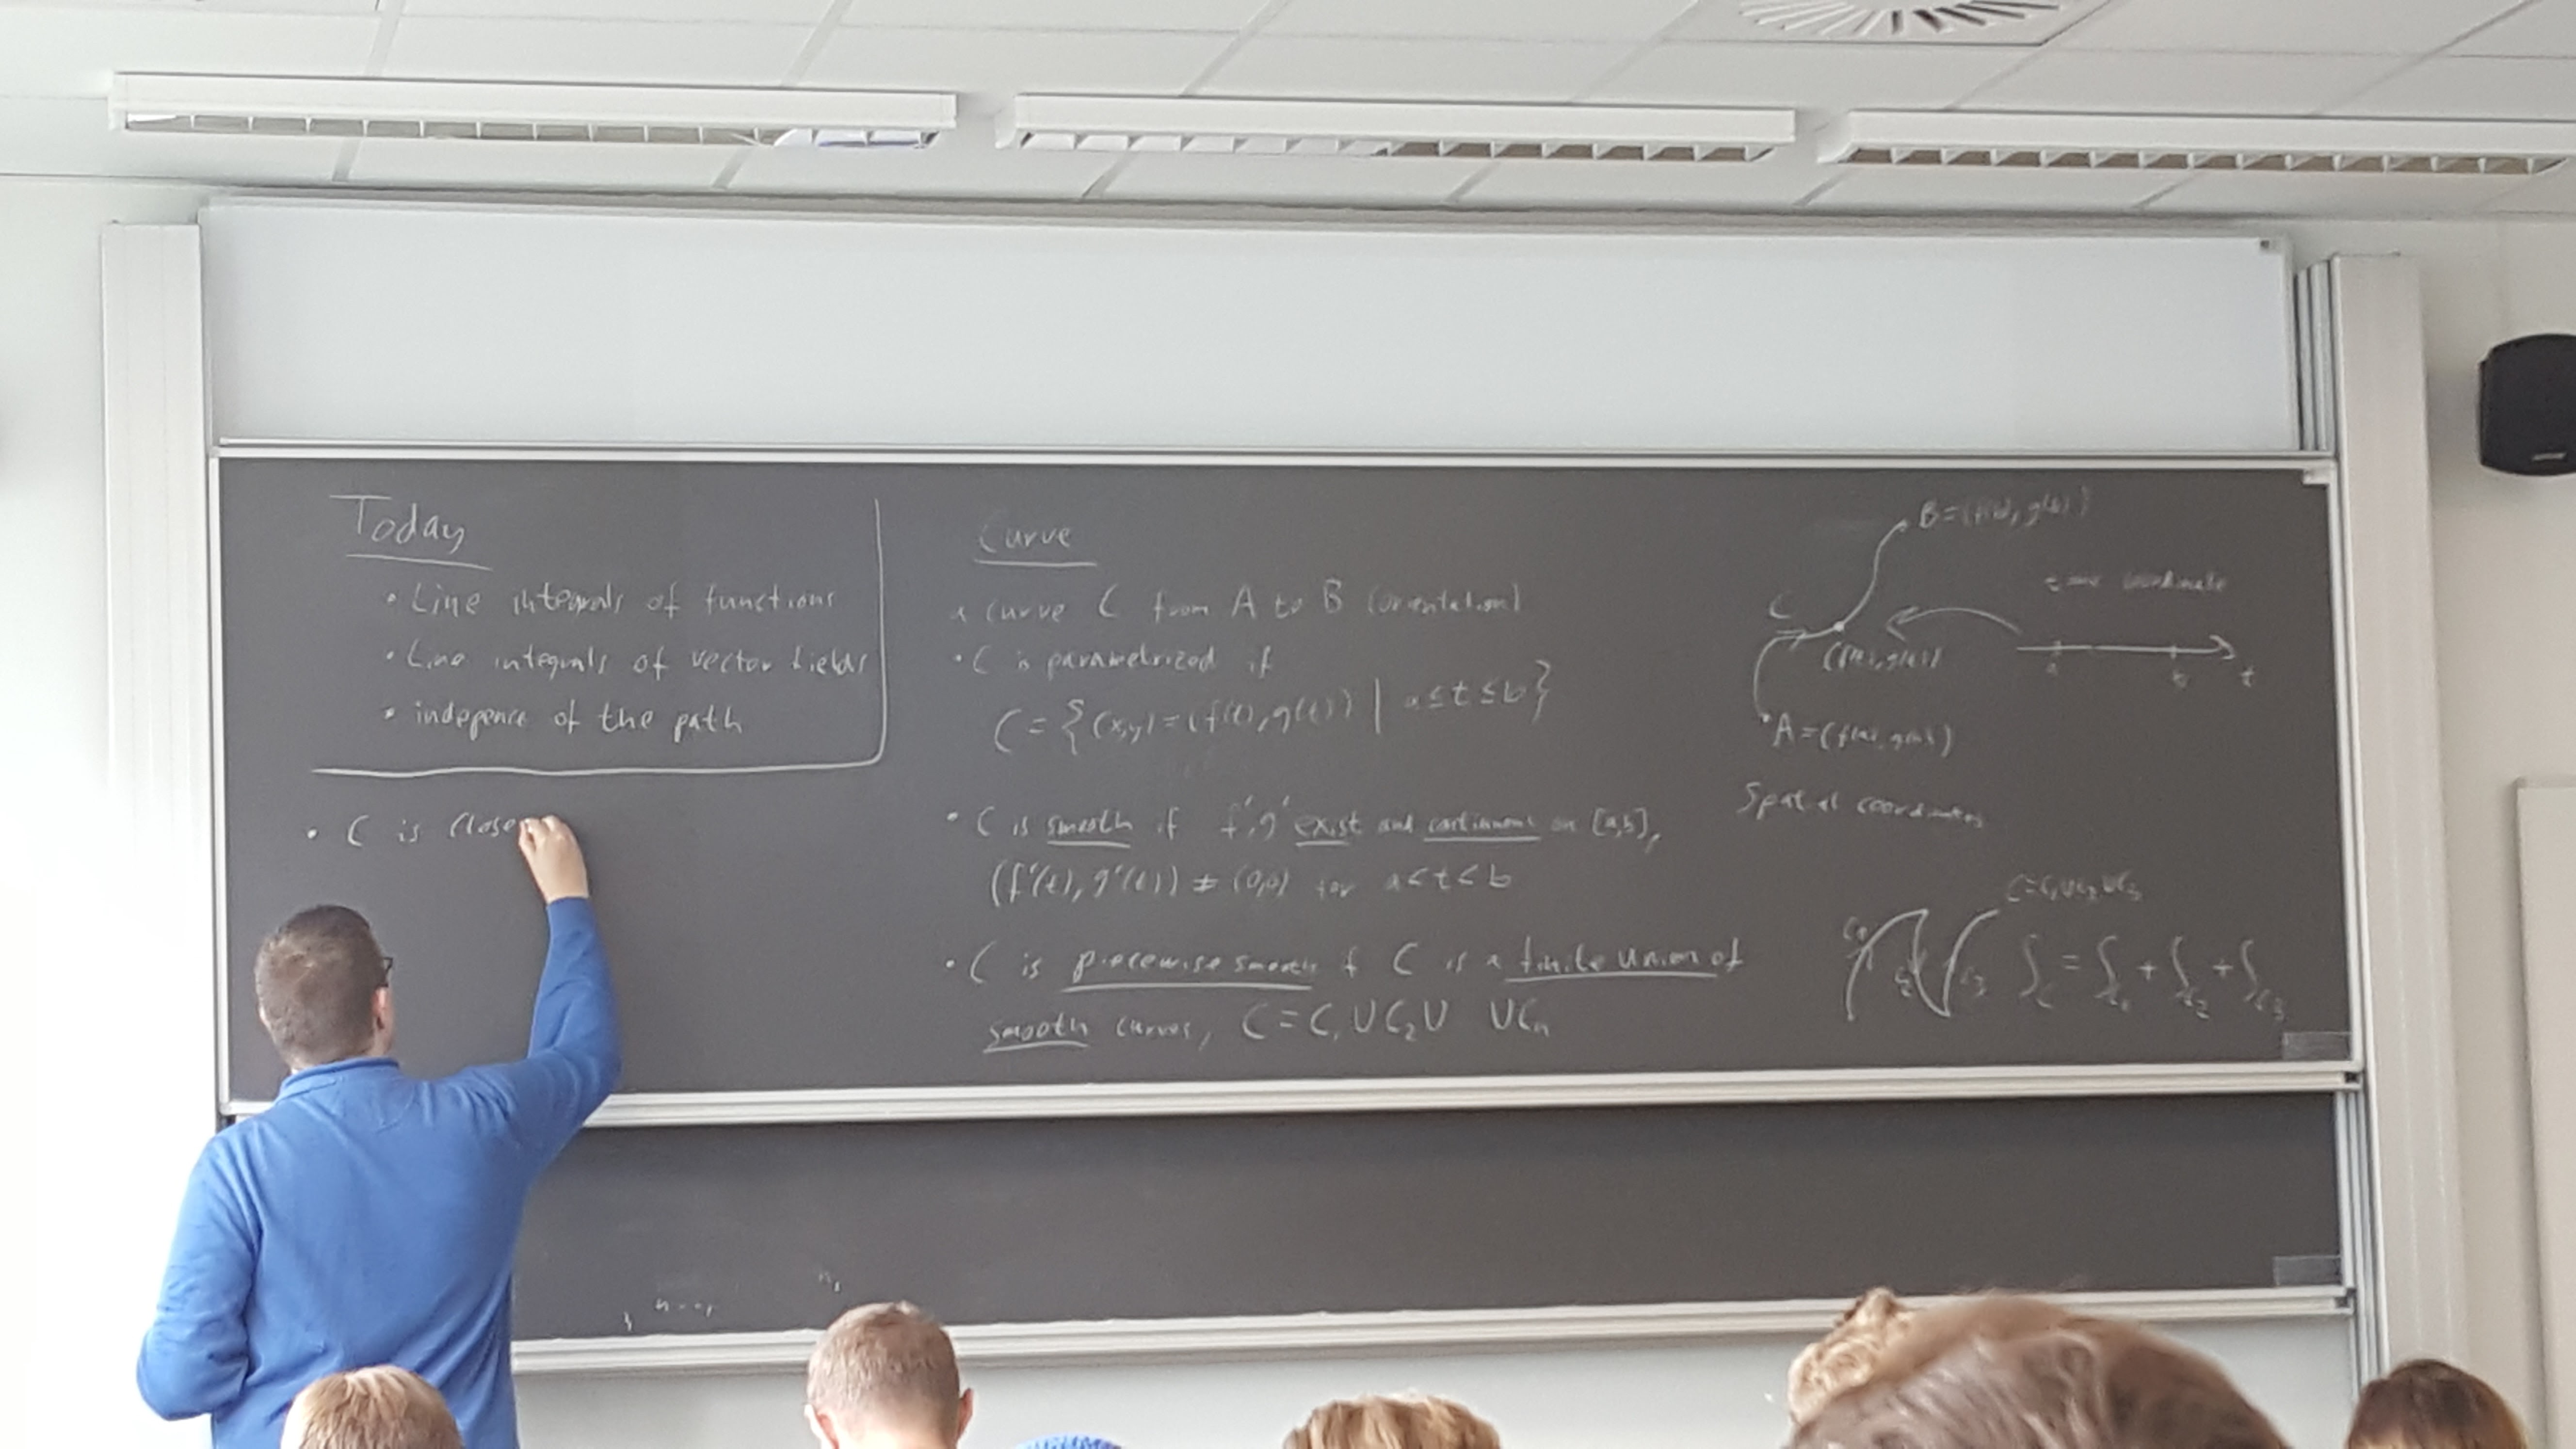 Today
• Line integrals of functions
• Line integrals of vector fields
• indepence of the path
• C is close
Curve
a curve C from A to B (orientation)
• C is parametrized if
C = {(x,y) = (f(t), g(t)) | a ≤ t ≤ b}
• C is smooth if f', g' exist and continuous on [a,b],
(f'(t), g'(t)) ≠ (0,0) for a < t < b
• C is piecewise smooth if C is a finite union of
smooth curves, C = C₁ ∪ C₂ ∪ ∪ Cₙ
B = (f(b), g(b))
time coordinate
C
(f(t), g(t))
a b t
A = (f(a), g(a))
Spatial coordinates
C = C₁ ∪ C₂ ∪ C₃
C₁ C₂ C₃ ∫_C = ∫_C₁ + ∫_C₂ + ∫_C₃